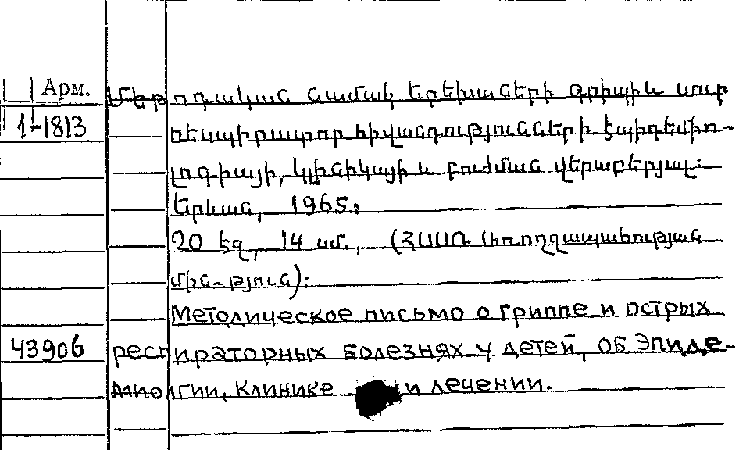 Арм. Մեթոդական նամակ երեխաների գրիպին սուր
1-1813 ռեսպիրատոր հիվանդությունների էպիդեմիո-
լոգիայի, կլինիկայի և բուժման վերաբերյալ:
Երևան, 1965.
20 էջ, 14 սմ., (ՀՍՍՌ Առողջապահության
մին-թյուն):
Методическое письмо о гриппе и острых
43906 респираторных болезнях у детей, об эпиде-
миологии, клинике и лечении.